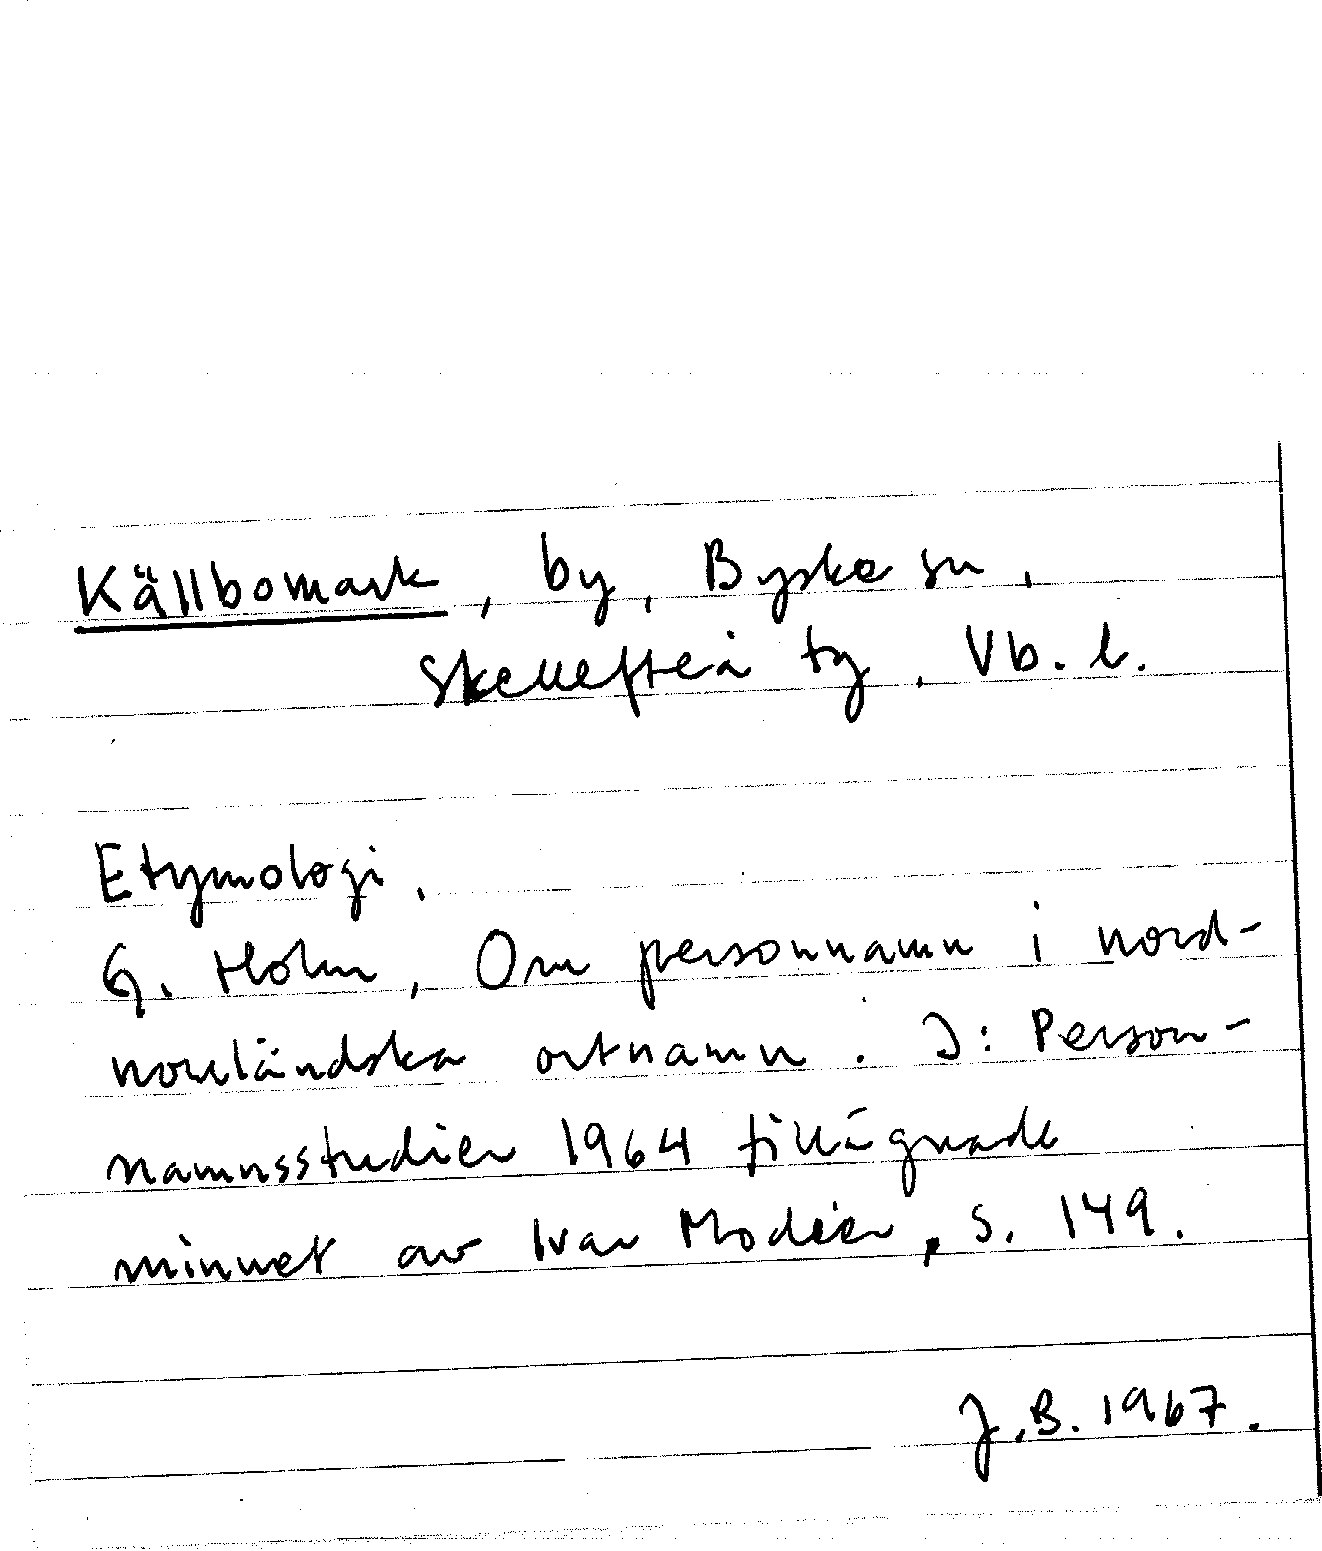 Källbomark, by, Byske sn,
Skellefteå tg, Vb. l.
Etymologi.
G. Holm, Om personnamn i nord-
norrländska ortnamn. I: Person-
namnsstudier 1964 tillägnade
minnet av Ivar Modéer, s. 149.
J.B. 1967.